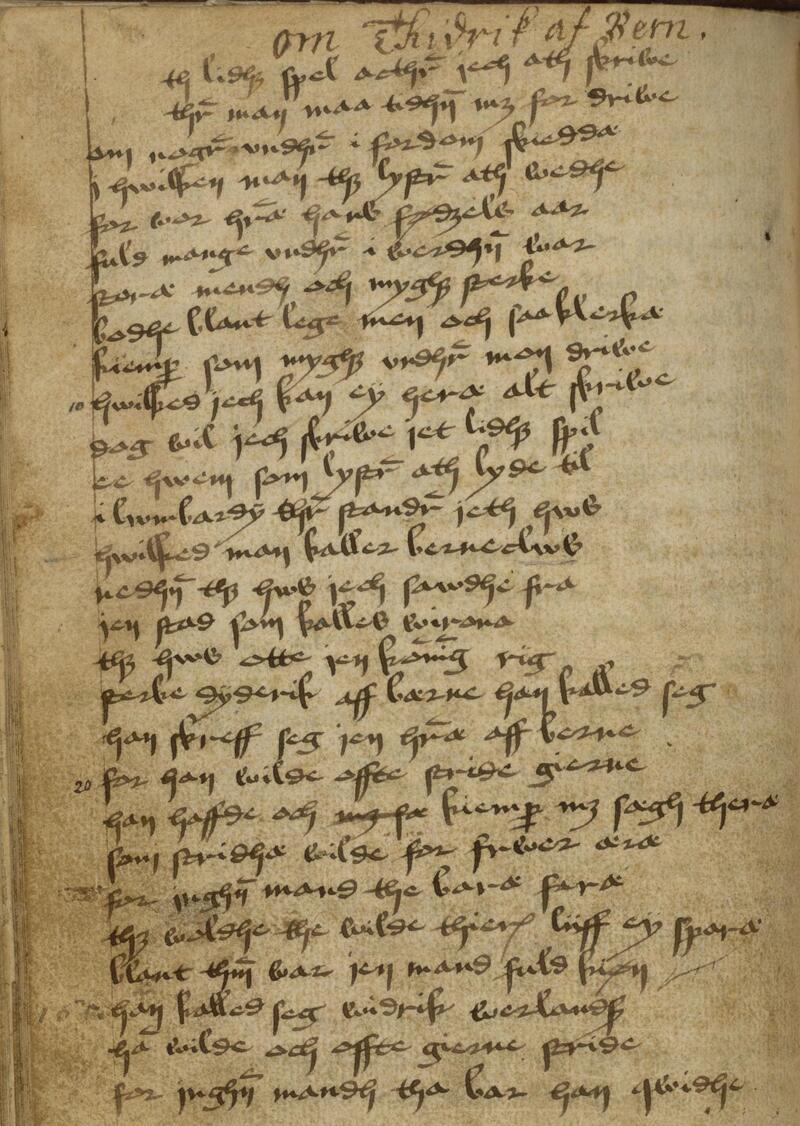 om Thidrik af Bern.
th lidhꝫ spel acthr̄ jech ath skriwe
thr̄ man maa tidhn̄ mꝫ for driwe
om nogr̄ vndhr̄ i fordom skieddæ
j hwilken man thꝫ lystr̄ ath wedhe
for wor hr̄æ hans fødzels aar
fuld mange vndhr̄ i werdhn̄ war
storæ mendh och myghꝫ sterke
bodhe blant lege men och saa klerkæ
kiemꝑ som myghꝫ vndhr̄ mon driwe
10 hwilked jech kan ey heræ alt skriwe
dog wil jech skriwe jet lidhꝫ spil
ee hwem som lystr̄ ath lyde til
i lwmbardy thr̄ standr̄ jeth hws
hwilked man kaller berneclws
nedhn̄ thꝫ hws jech sawdhe fra
jen stad som kalles wirona
thꝫ hws otte jen kon̄īg rig
sterke dyderik aff bærne han kalled seg
han skreff seg jen hr̄æ aff berne
20 for han wilde offte stride gierne
han haffde och kiemꝑ mꝫ sægh theræ
som stridhæ wilde for frwer æræ
for jnghn̄ mand the baræ faræ
thꝫ woldhe the wilde thieris liiff ey sparæ
blant thm̄ war jen mand fuld kiøn
han kalled seg widrik werlandꝫ
hā wilde och offte gierne stride
for jnghn̄ mandh tha bar han qwidhe